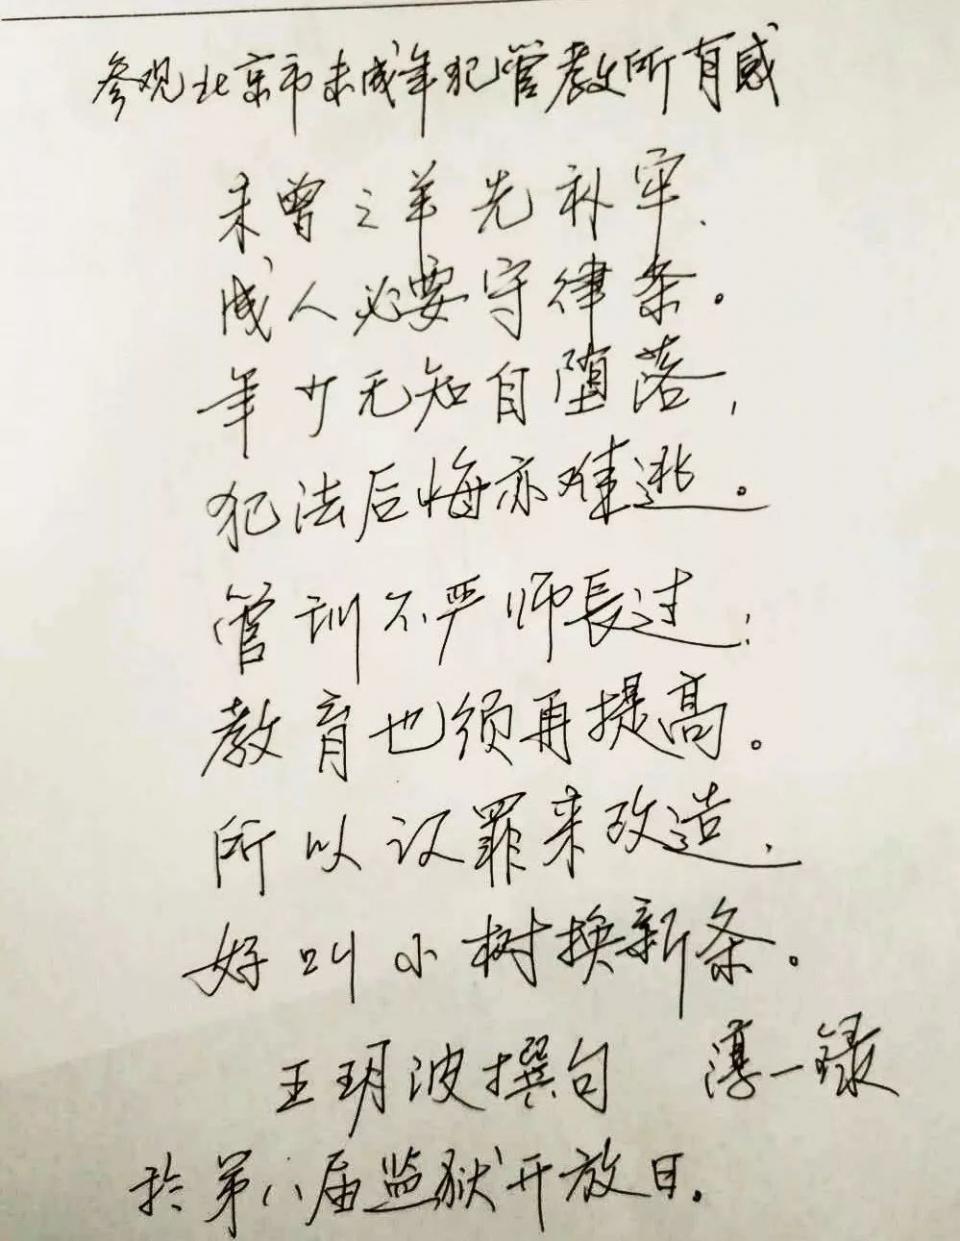 参观北京市未成年犯管教所有感
未曾亡羊先补牢，
成人必要守律条。
年少无知自堕落，
犯法后悔亦难逃。
管训不严师長过；
教育也须再提高。
所以认罪来改造，
好叫小树换新条。
王玥波撰句 淳一録
於第八届监狱开放日。